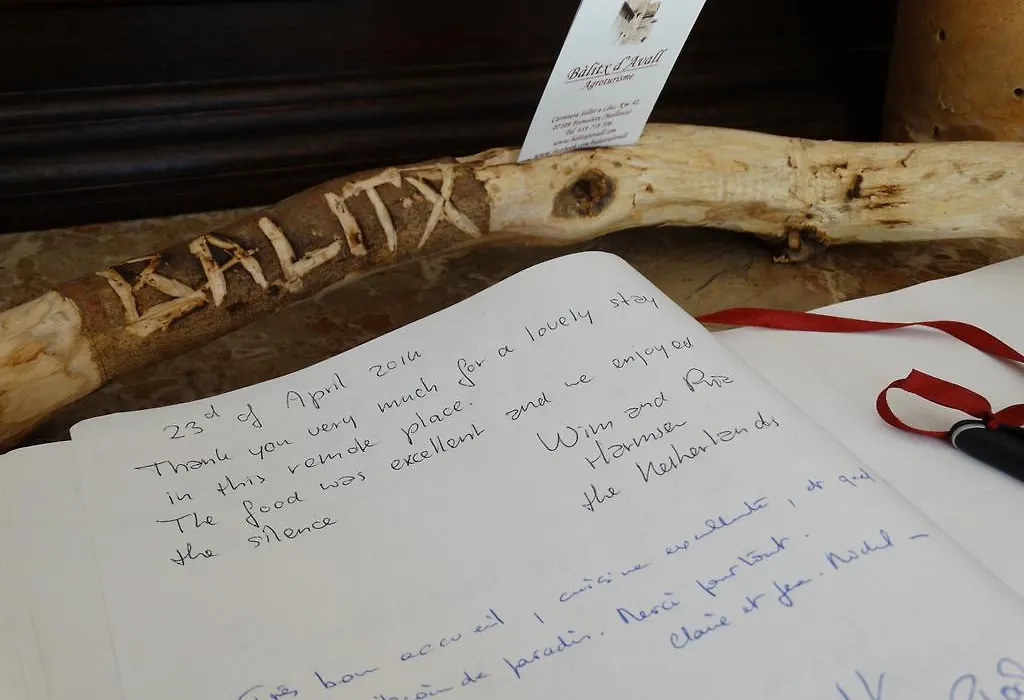 Bàlitx d'Avall
Agroturisme
BALITX
23d of April 2014
Thank you very much for a lovely stay
in this remote place.
The food was excellent and we enjoyed
the silence
Wim and Ria
Harmsen
the Netherlands
Très bon accueil, cuisine excellente, et quel
de paradis. Merci pour tout.
Claire et